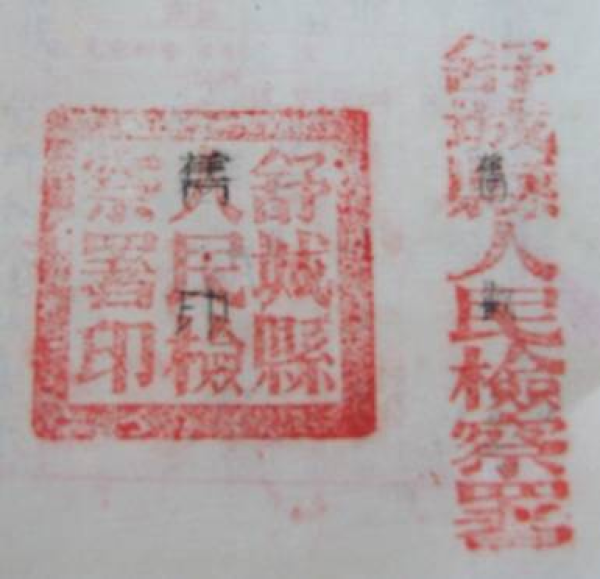 舒城縣人民檢察署
舒城縣
人民檢
察署印
舊印